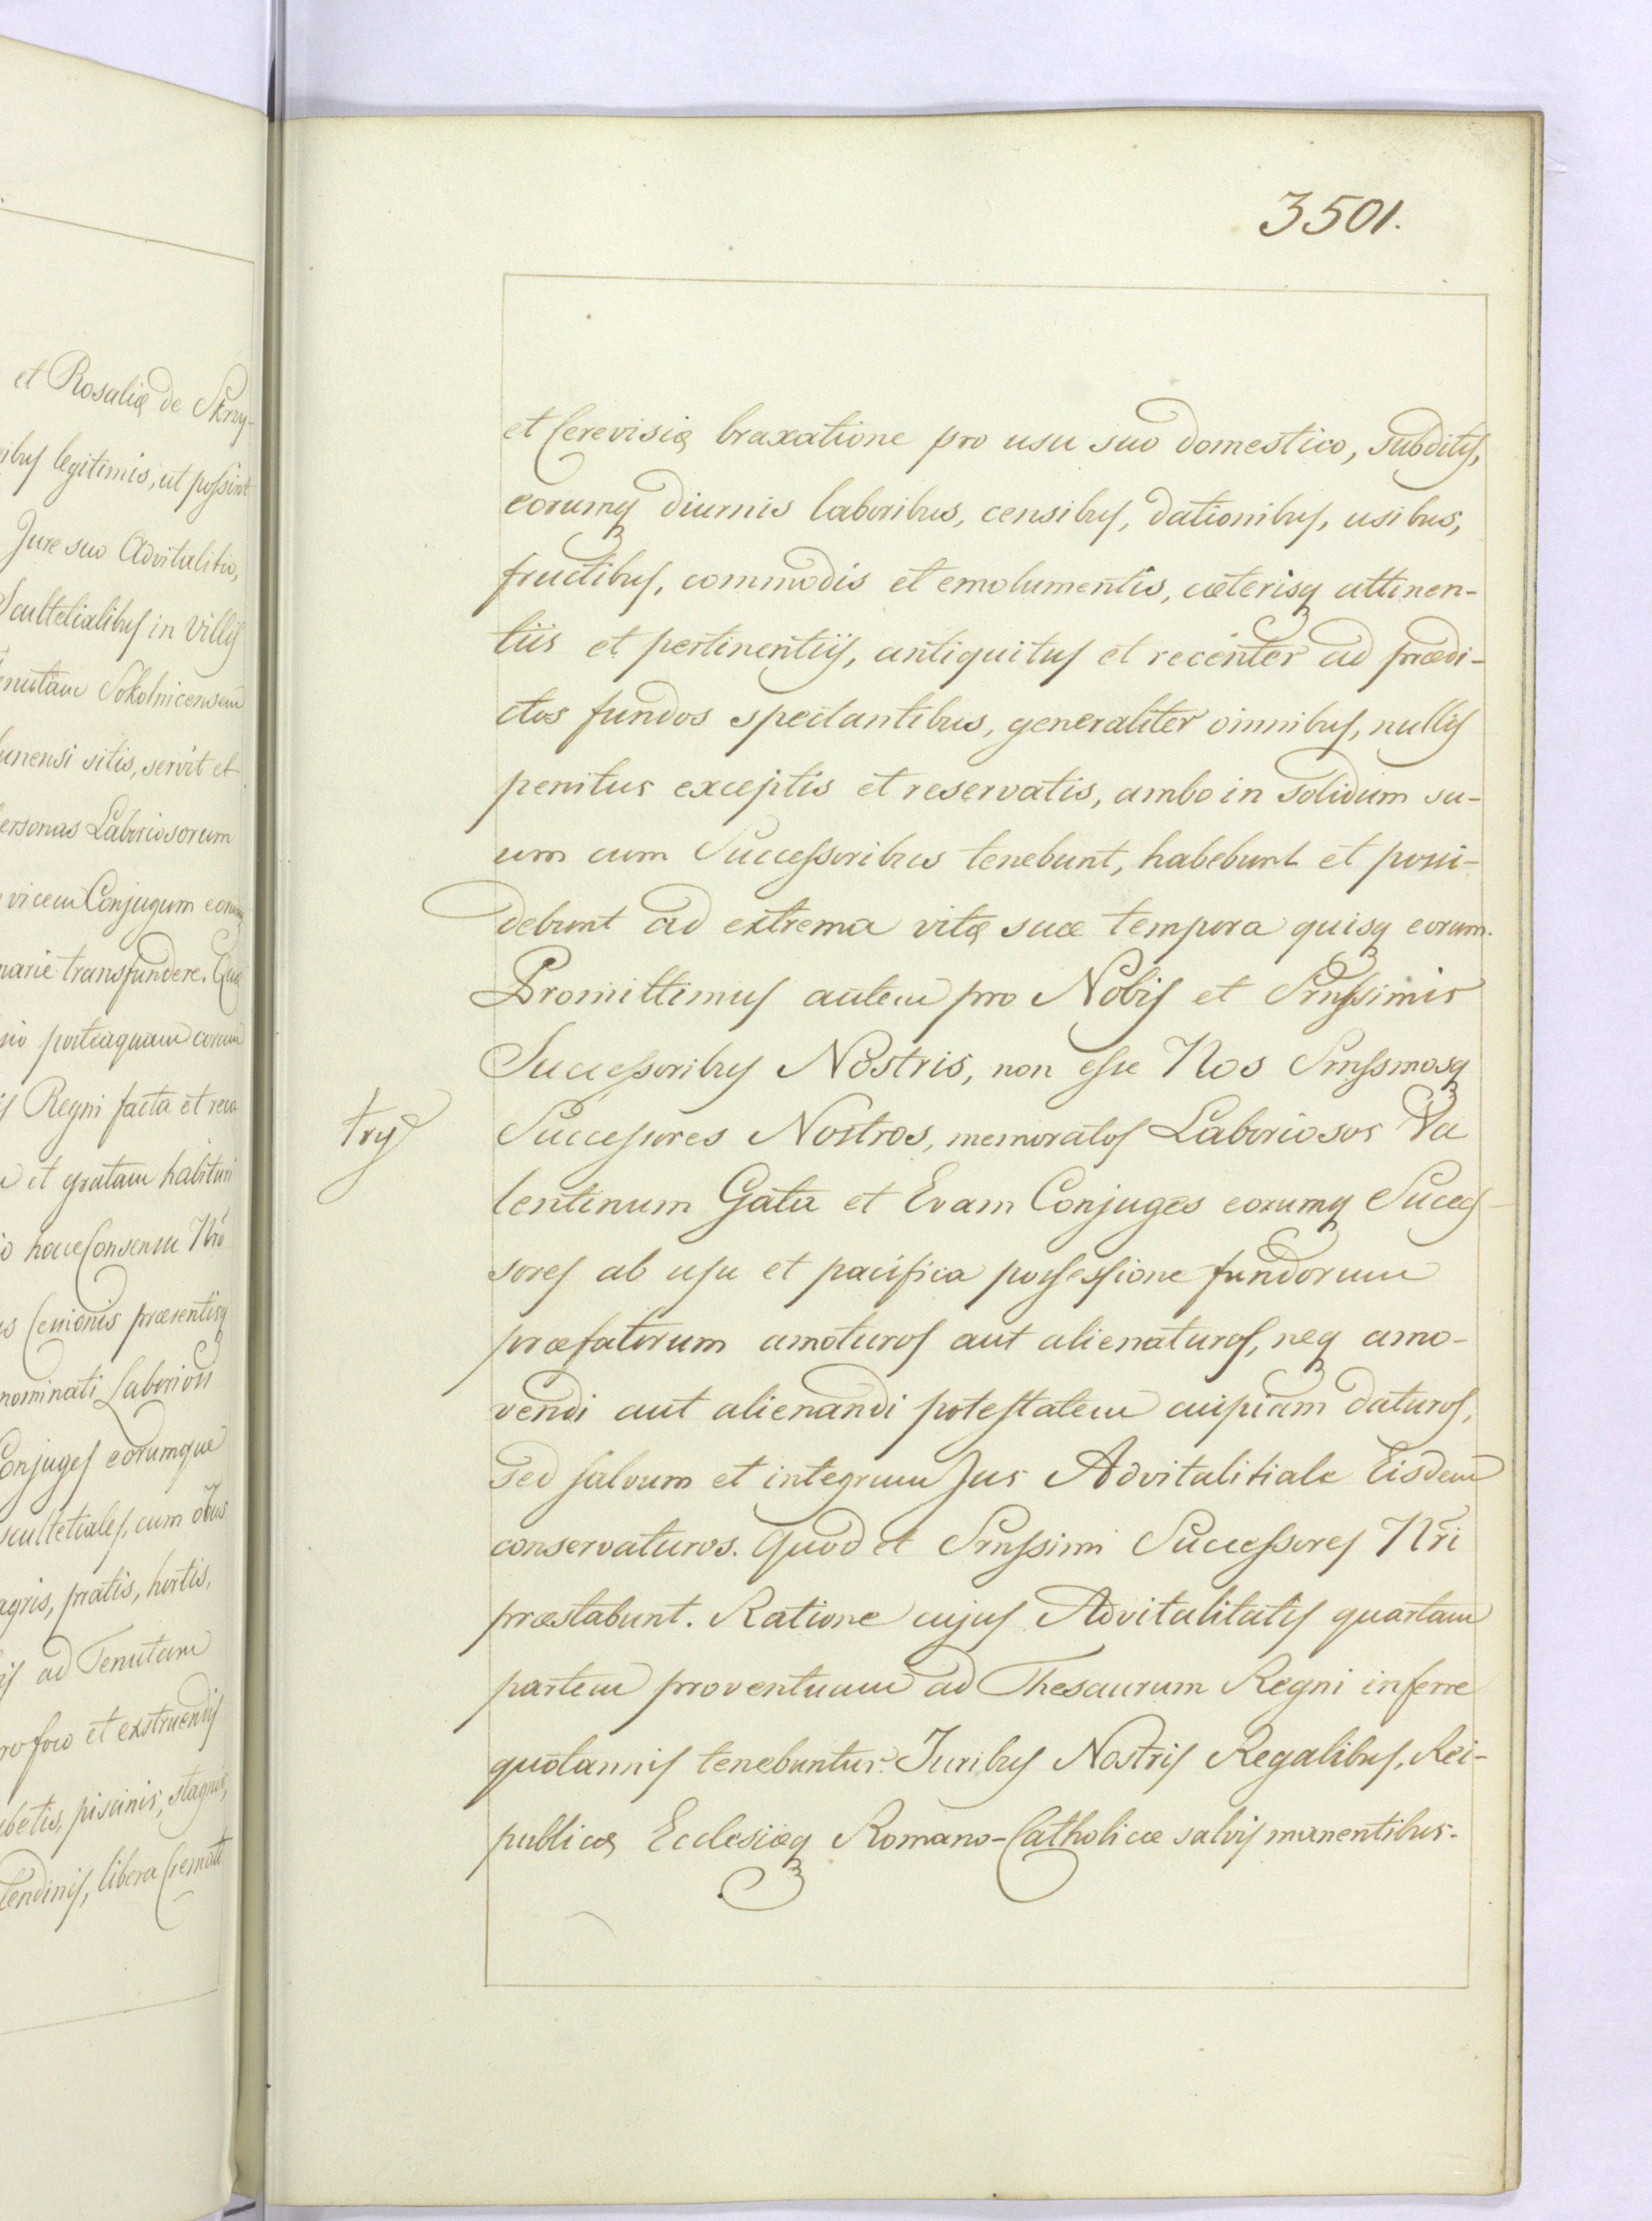 et Rosaliæ de Skrzy-
ibus legitimis, ut possint
Jure suo Advitalitio,
Scultetialibus in Villis
Tenutam Sokolnicensem
unensi sitis, servit et
personas Laboriosorum
vicem Conjugum eorumq
narie transfundere. Quæ
sio posteaquam coram
is Regni facta et reco
et gratam habituri
hocce Consensu Nrō
Cessionis præsentisq
nominati Laboriosi
Conjuges eorumque
scultetiales, cum oībus
agris, pratis, hortis,
ad Tenutam
ro foco et exstruendis
betis, piscinis, stagnis,
lendinis, libera Cremati
3501.
et Cerevisiæ braxatione pro usu suo domestico, subditis,
eorumq diurnis laboribus, censibus, dationibus, usibus,
fructibus, commodis et emolumentis, cæterisq attinen-
tiis et pertinentijs, antiquitus et recenter ad prædi-
ctos fundos spectantibus, generaliter omnibus, nullis
penitus exceptis et reservatis, ambo in solidum su-
um cum Successoribus tenebunt, habebunt et possi-
debunt ad extrema vitæ suæ tempora quisq eorum.
Promittimus autem pro Nobis et Srnssimis
Successoribus Nostris, non esse Nos Srnssmosq
try
Successores Nostros, memoratos Laboriosos Va
lentinum Gata et Evam Conjuges eorumq Succes-
sores ab usu et pacifica possessione fundorum
præfatorum amoturos aut alienaturos, neq amo-
vendi aut alienandi potestatem cuipiam daturos,
sed salvum et integrum Jus Advitalitiale Eisdem
conservaturos. Quod et Srnssimi Successores Nrī
præstabunt. Ratione cujus Advitalitatis quartam
partem proventuum ad Thesaurum Regni inferre
quotannis tenebuntur. Juribus Nostris Regalibus, Rei-
publicæ Ecclesiæq Romano-Catholicæ salvis manentibus.